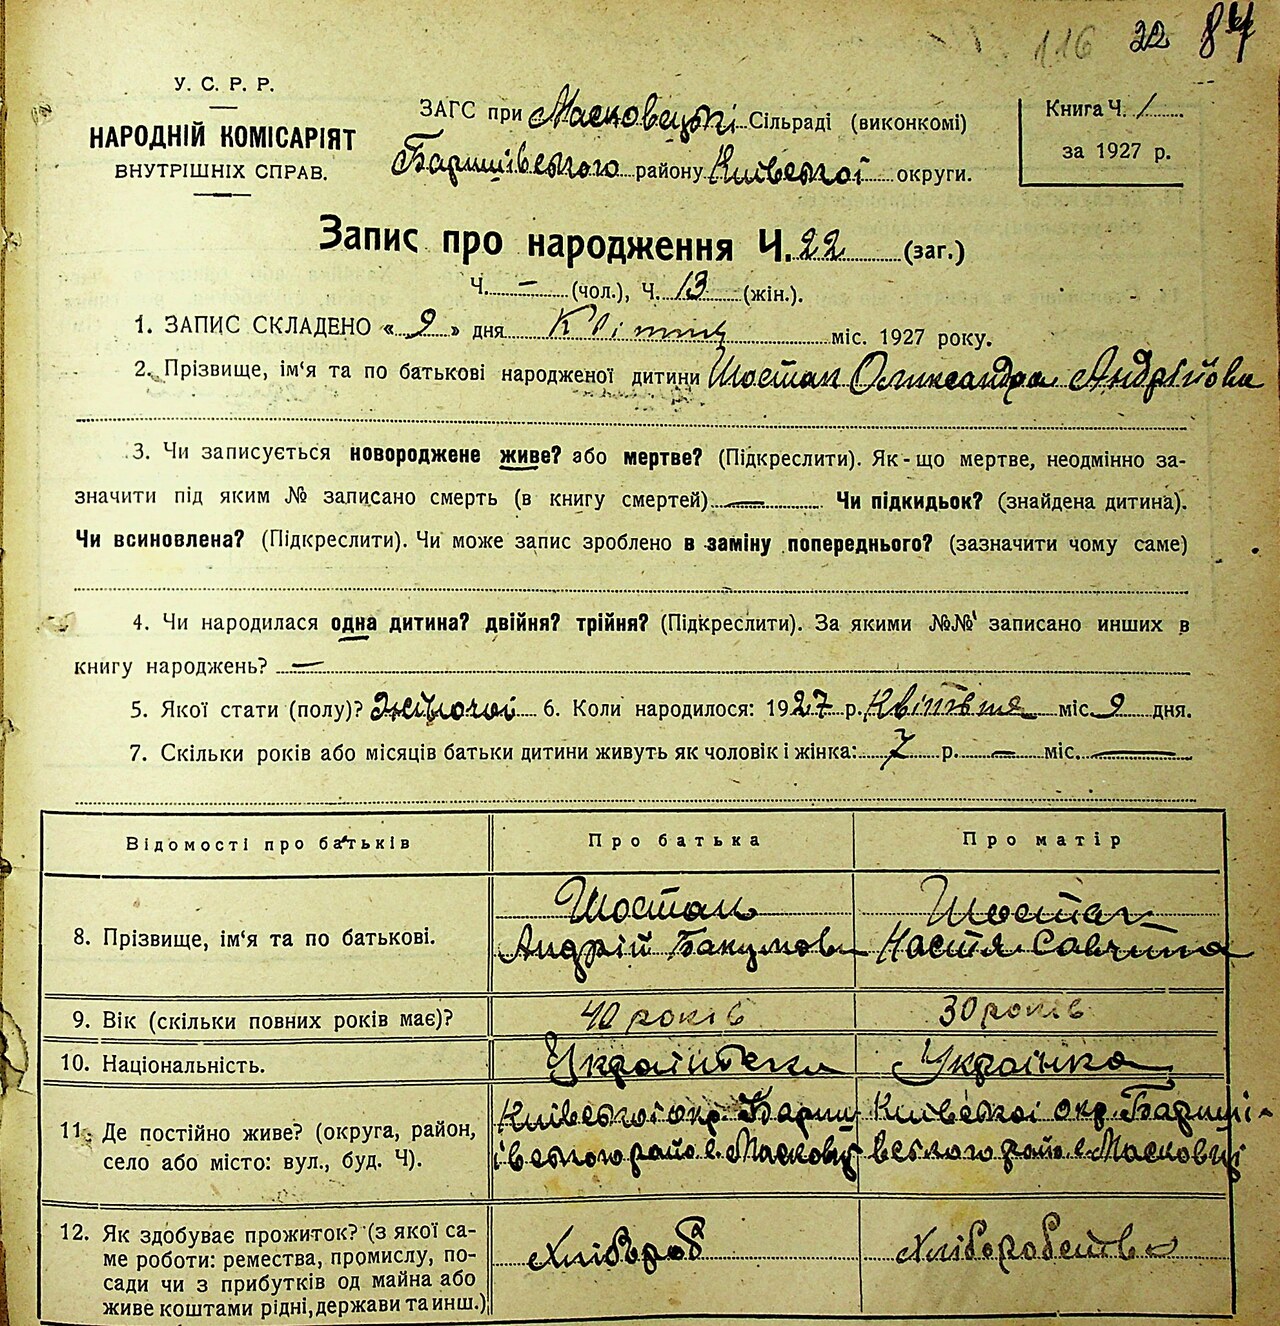 116 22 84
У. С. Р. Р.
НАРОДНІЙ КОМІСАРІЯТ
ВНУТРІШНІХ СПРАВ.
ЗАГС при Масковецькі Сільраді (виконкомі)
Баришівського району Київської округи.
Книга Ч. 1
за 1927 р.
Запис про народження Ч. 22 (заг.)
Ч. – (чол.), Ч. 13 (жін.).
1. ЗАПИС СКЛАДЕНО « 9 » дня Квітня міс. 1927 року.
2. Прізвище, ім‘я та по батькові народженої дитини Шостак Олександра Андрійовна
3. Чи записується новороджене живе? або мертве? (Підкреслити). Як-що мертве, неодмінно за-
значити під яким № записано смерть (в книгу смертей) — Чи підкидьок? (знайдена дитина).
Чи всиновлена? (Підкреслити). Чи може запис зроблено в заміну попереднього? (зазначити чому саме)
4. Чи народилася одна дитина? двійня? трійня? (Підкреслити). За якими №№ записано инших в
книгу народжень? —
5. Якої стати (полу)? жіночої 6. Коли народилося: 1927 р. Квітня міс. 9 дня.
7. Скільки років або місяців батьки дитини живуть як чоловік і жінка: 7 р. — міс. —
Відомості про батьків Про батька Про матір
8. Прізвище, ім‘я та по батькові.
Шостак
Андрій
Шостак
Настя Савчина
9. Вік (скільки повних років має)? 40 років 30 років
10. Національність. Українець Українка
11. Де постійно живе? (округа, район,
село або місто: вул., буд. Ч).
Київської окр. Бариш
івського райо с. Масковці
Київської окр. Бариші-
вського райо с. Масковці
12. Як здобуває прожиток? (з якої са-
ме роботи: ремества, промислу, по-
сади чи з прибутків од майна або
живе коштами рідні, держави та инш.)
Хлібороб
Хліборобство